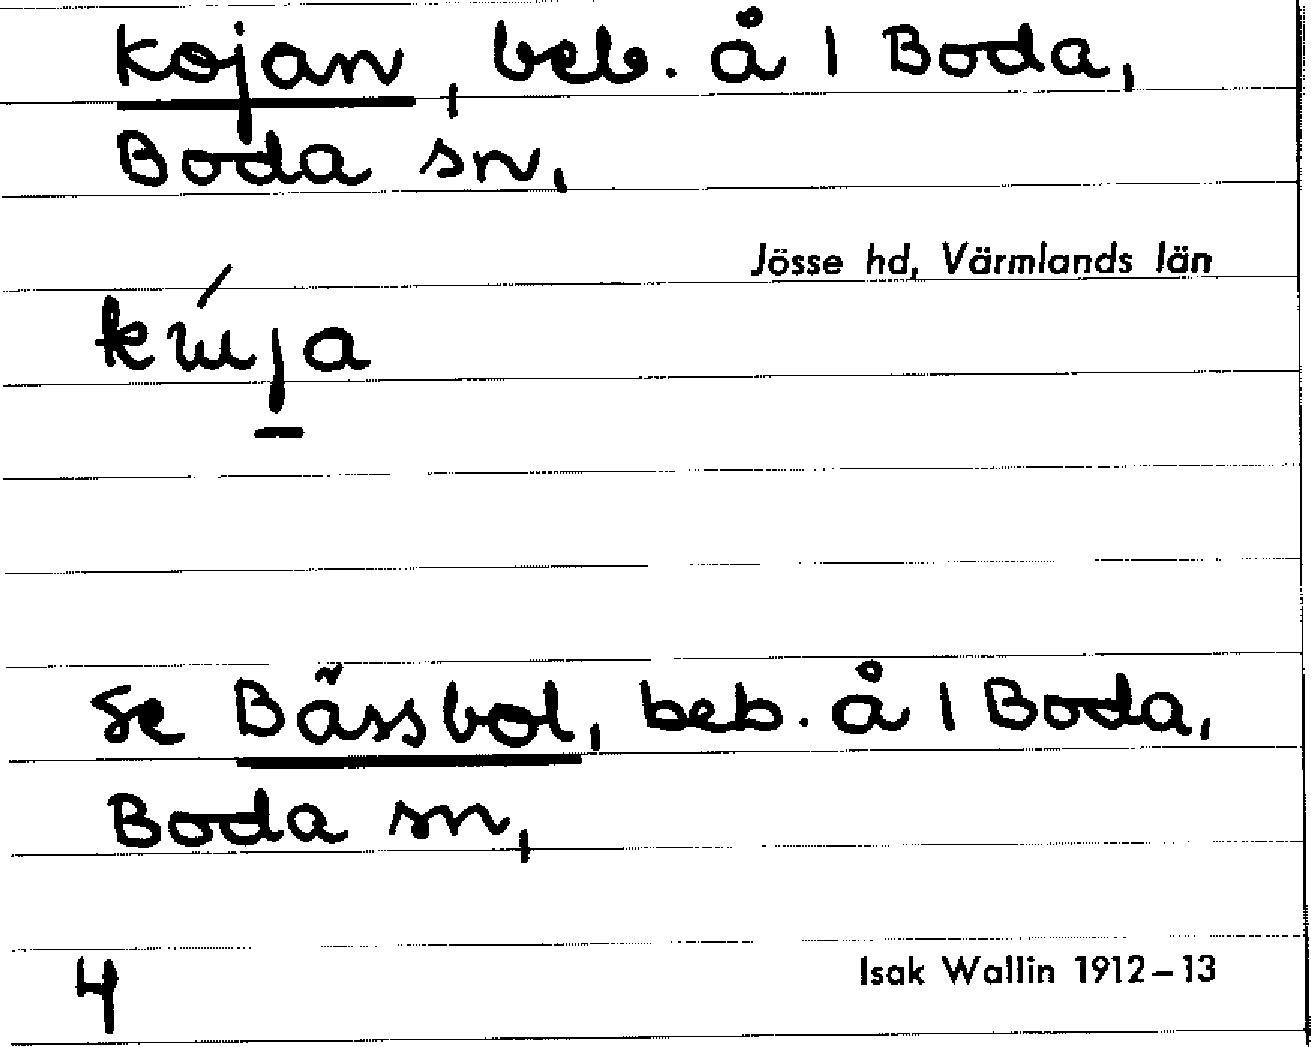 Kojan, beb. å 1 Boda,
Boda sn,
Jösse hd, Värmlands län
Se Båssbol, beb. å 1 Boda,
Boda sn,
4
Isak Wallin 1912–13